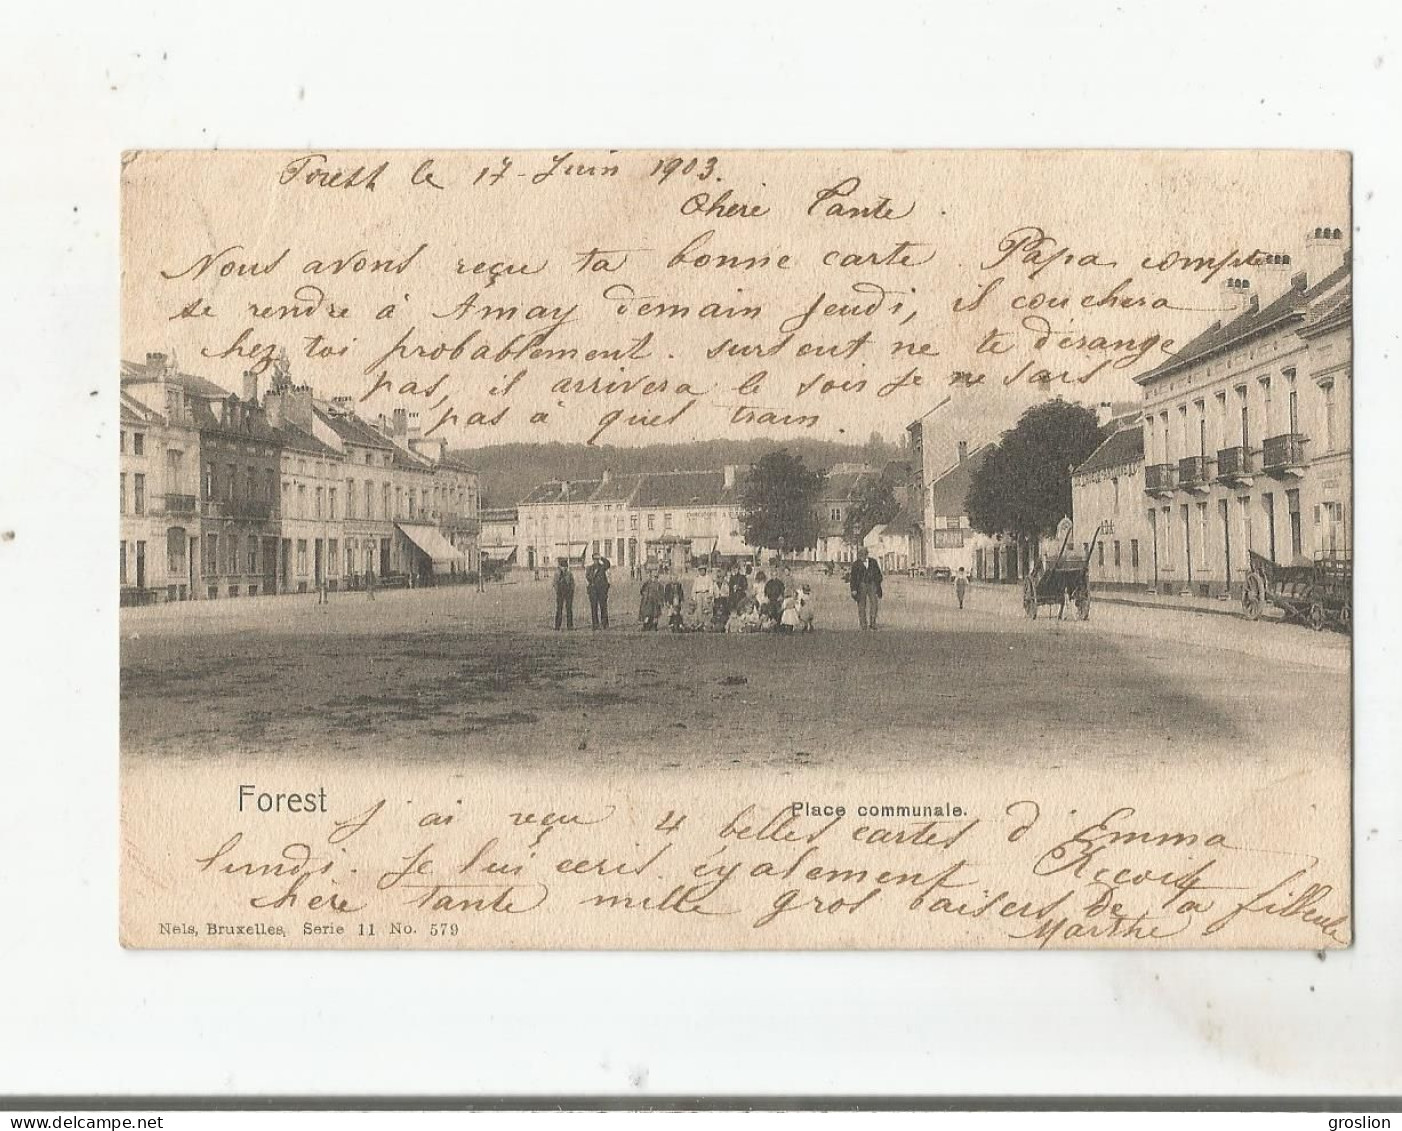 Forest le 17 - Juin 1903.
Chère Tante.
Nous avons reçu ta bonne carte. Papa compte
se rendre à Amay demain Jeudi, il couchera
chez toi probablement. surtout ne te dérange
pas, il arrivera le soir je ne sais
pas à quel train.
Forest
Place communale.
J'ai reçu 4 belles cartes d'Emma
lundi. Je lui écris également Reçois
chère tante mille gros baisers de ta filleule
Marthe
Nels, Bruxelles, Serie 11 No. 579
groslion